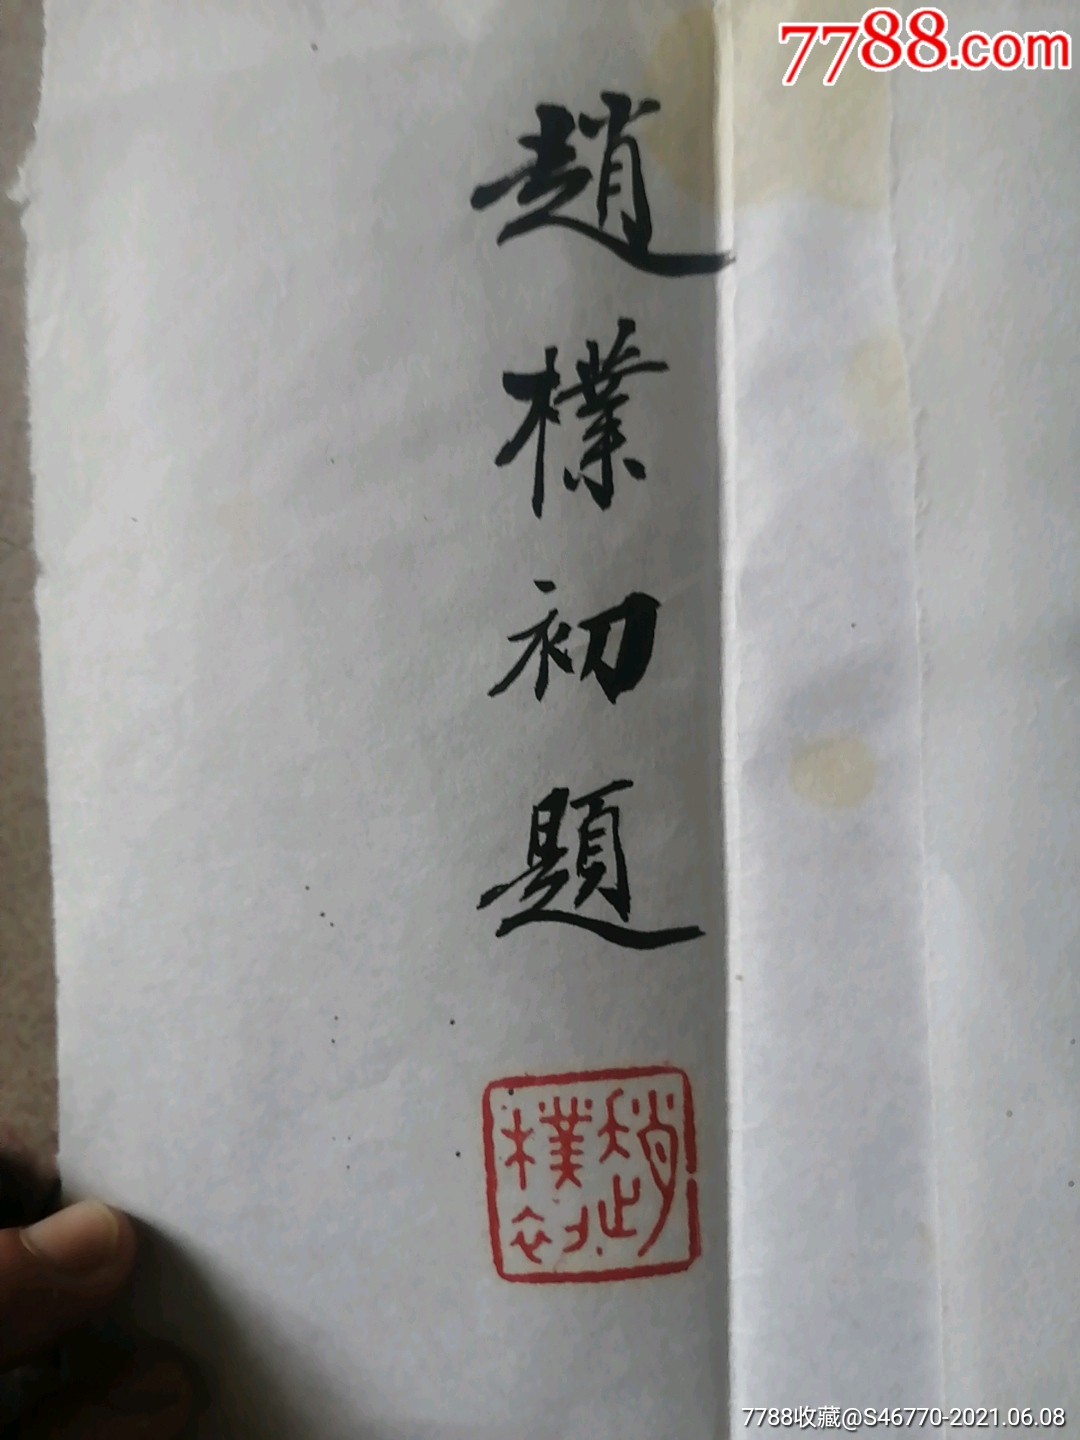 7788.com
趙樸初題
趙樸初
7788收藏@S46770-2021.06.08